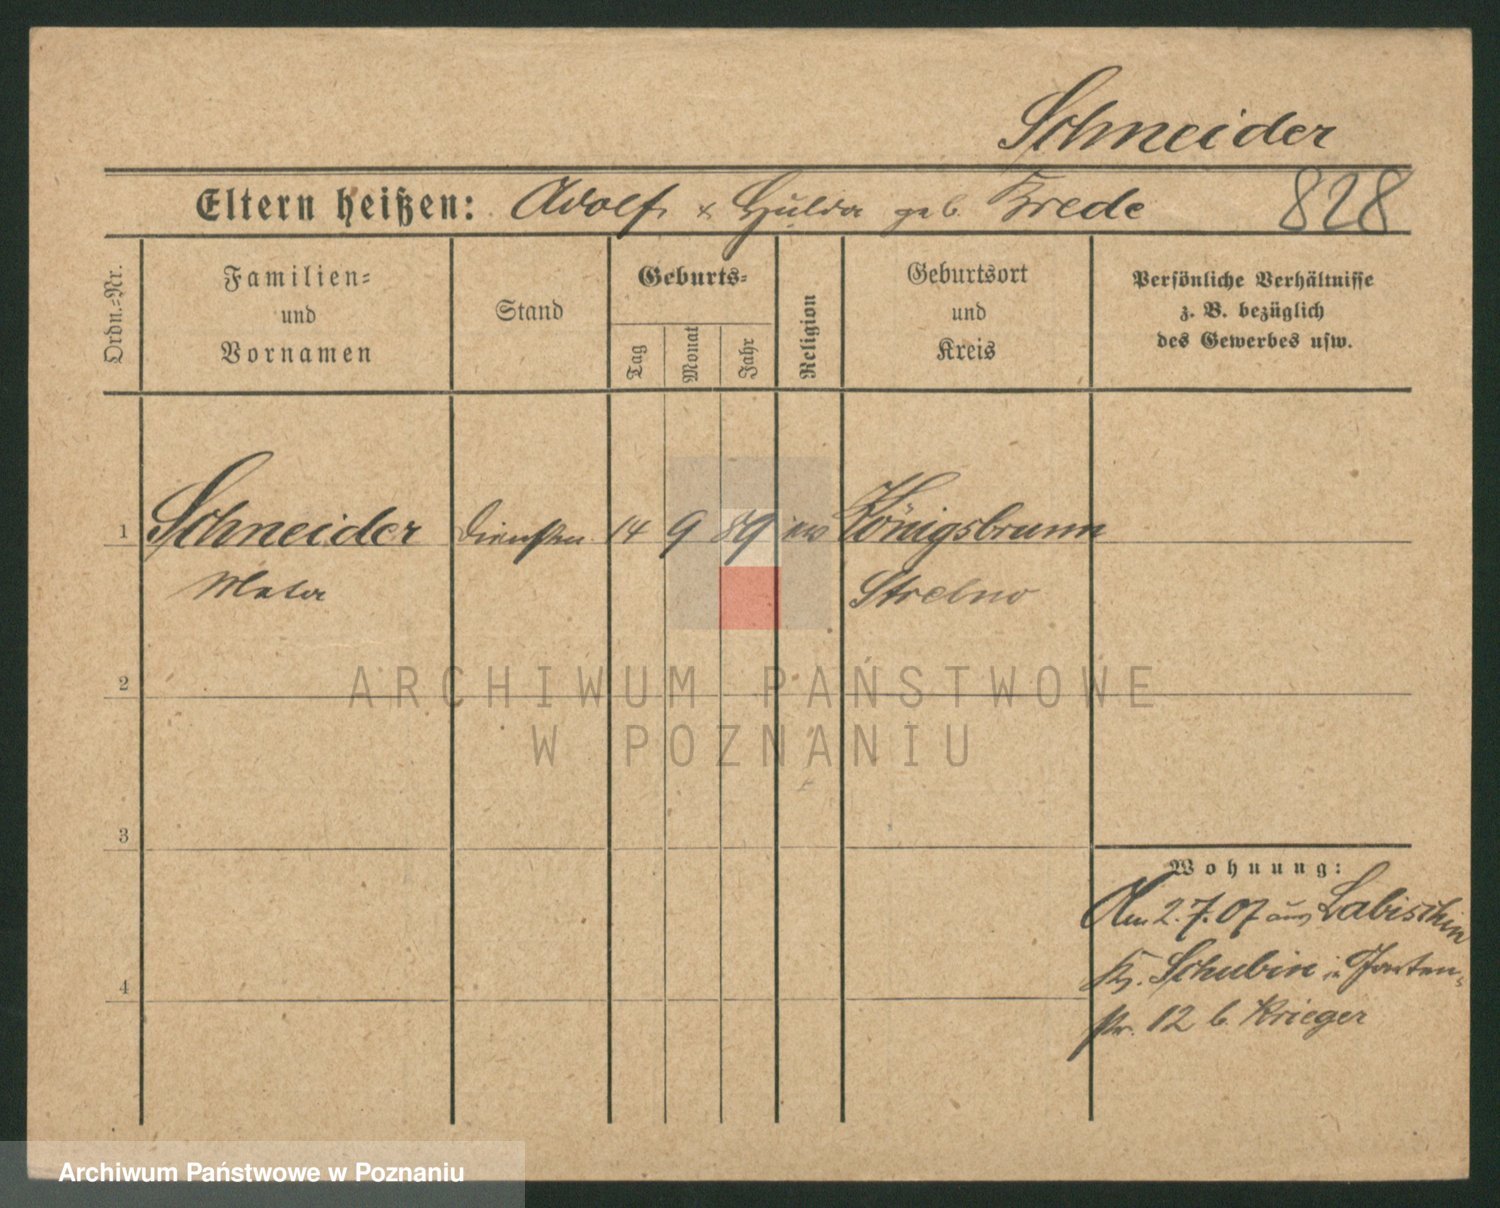 Schneider
Eltern heißen: Adolf & Hulda geb. Krede
828
Ordn.-Nr.
Familien-
und
Vornamen
Stand
Geburts-
Tag
Monat
Jahr
Religion
Geburtsort
und
Kreis
Persönliche Verhältnisse
z. B. bezüglich
des Gewerbes usw.
1 Schneider 14 9 89 Königsbrunn
Meta Strelno
2
ARCHIWUM PAŃSTWOWE
W POZNANIU
3
Wohnung:
Am 2.7.07 aus Labischin
Kr. Schubin in Garten-
4
str. 12 b. Krieger
Archiwum Państwowe w Poznaniu